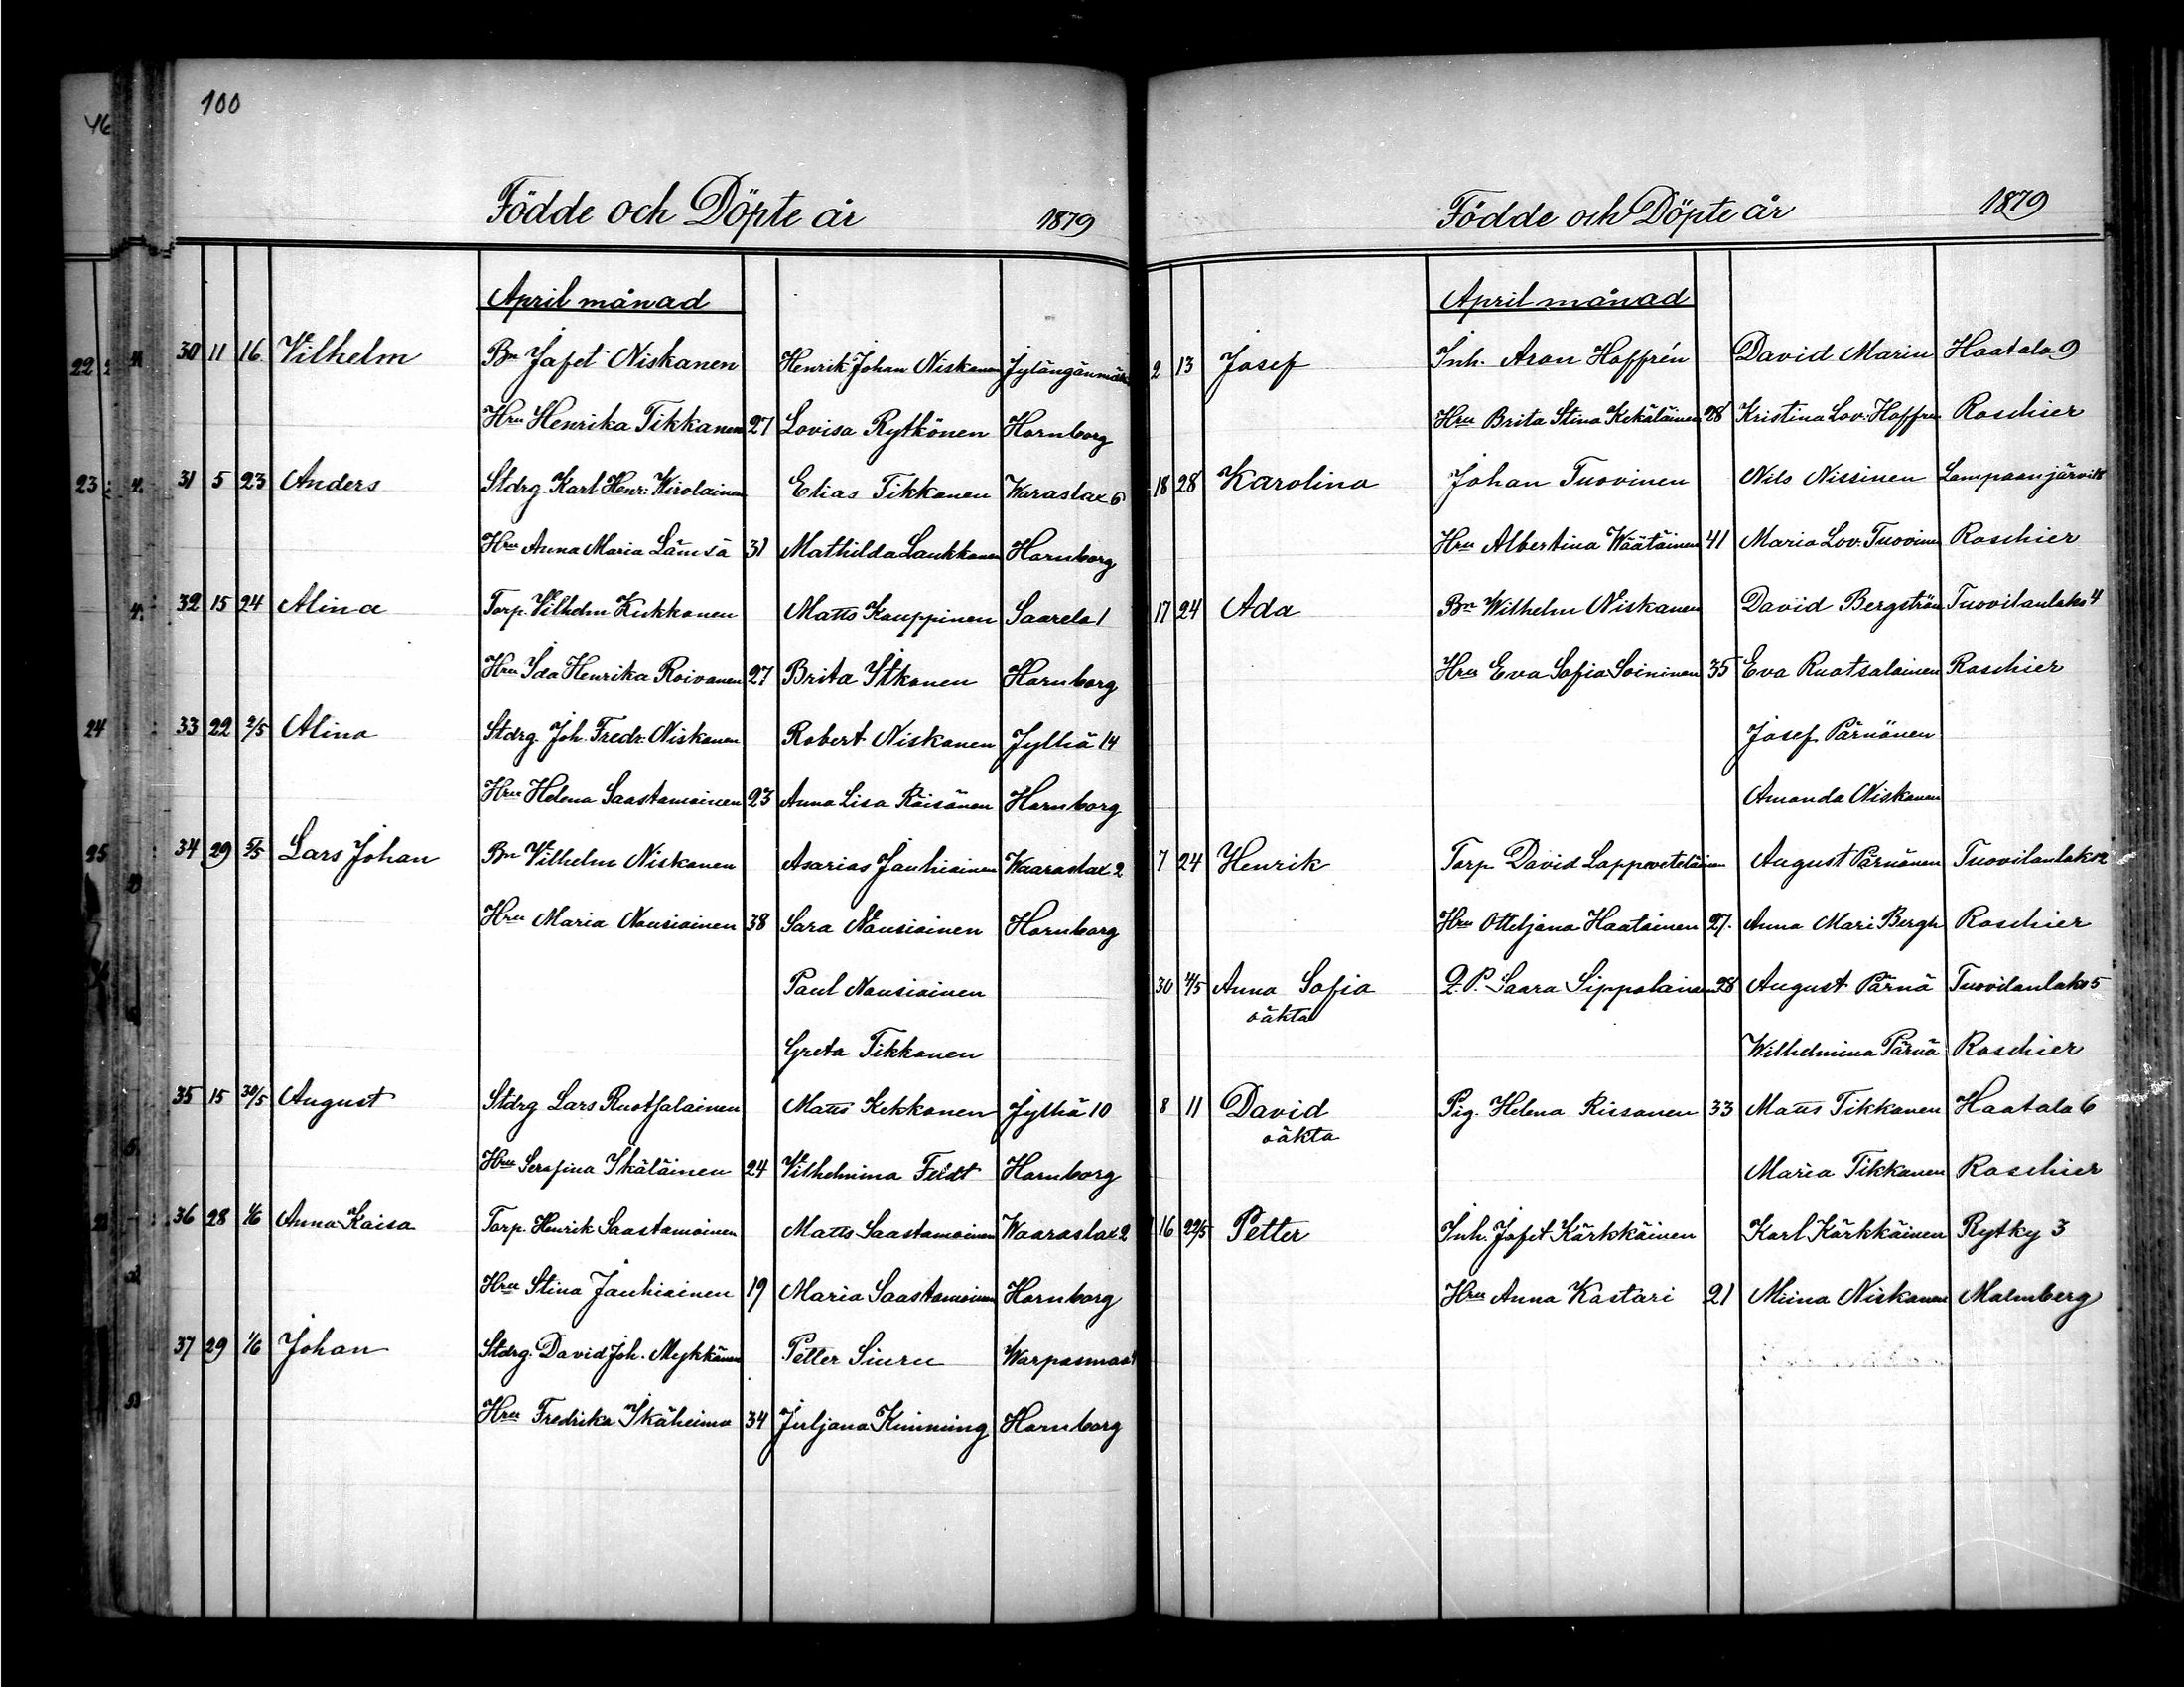 100
46
Födde och Döpte år 1879
April månad
30 11 16 Vilhelm Bn Jafet Niskanen Henrik Johan Niskanen
Hru Henrika Tikkanen 27 Lovisa Rytkönen Hornborg
31 5 23 Anders Stdrg. Karl Henr. Wirolainen Elias Tikkanen Waraslax 6
Hru Anna Maria Lämsä 31 Mathilda Laukkanen Hornborg
32 15 24 Alina Torp. Vilhelm Kukkonen Matts Kauppinen Saarela 1
Hru Ida Henrika Roivanen 27 Brita Itkonen Hornborg
33 22 2/5 Alina Stdrg. Joh. Fredr. Niskanen Robert Niskanen Jylhä 14
Hru Helena Saastamoinen 23 Anna Lisa Räisänen Hornborg
34 29 5/5 Lars Johan Bn Vilhelm Niskanen Asarias Jauhiainen Waaraslax 2
Hru Maria Nousiainen 38 Sara Nousiainen Hornborg
Paul Nousiainen
Greta Tikkanen
35 15 30/5 August Stdrg Lars Ruotsalainen Matts Kekkonen Jylhä 10
Hru Serafina Ikäläinen 24 Vilhelmina Feldt Hornborg
36 28 1/6 Anna Kaisa Torp. Henrik Saastamoinen Matts Saastamoinen Waaraslax 2
Hru Stina Jauhiainen 19 Maria Saastamoinen Hornborg
37 29 1/6 Johan Stdrg. David Joh. Mykkänen Petter Siuru
Hru Fredrika Ikäheimo 34 Juljana Kimming Hornborg
Födde och Döpte år 1879
April månad
2 13 Josef Inh. Aron Hoffrén David Marin Haatala 9
Hru Brita Stina Kekäläinen 28 Kristina Lov. Hoffren Roschier
18 28 Karolina Johan Tuovinen Nils Nissinen
Hru Albertina Wäätäinen 41 Maria Lov. Tuovinen Roschier
17 24 Ada Bn Wilhelm Niskanen David Bergström Tuovilanlaks 4
Hru Eva Sofia Soininen 35 Eva Ruotsalainen Roschier
Josef Pärnänen
Amanda Niskanen
7 24 Henrik Torp David Lappveteläinen August Pärnänen Tuovilanlaks 12
Hru Otteljana Haatainen 27. Anna Mari Bergh Roschier
30 4/5 Anna Sofia Q.P. Saara Sippolainen 28 August Pärnä Tuovilanlaks 5
oäkta
Wilhelmina Pärnä Roschier
8 11 David Pig. Helena Rissanen 33 Matts Tikkanen Haatala 6
oäkta
Maria Tikkanen Roschier
16 22/5 Petter Inh. Jafet Kärkkäinen Karl Kärkkäinen Rytky 3
Hru Anna Kastari 21 Miina Niskanen Malmberg